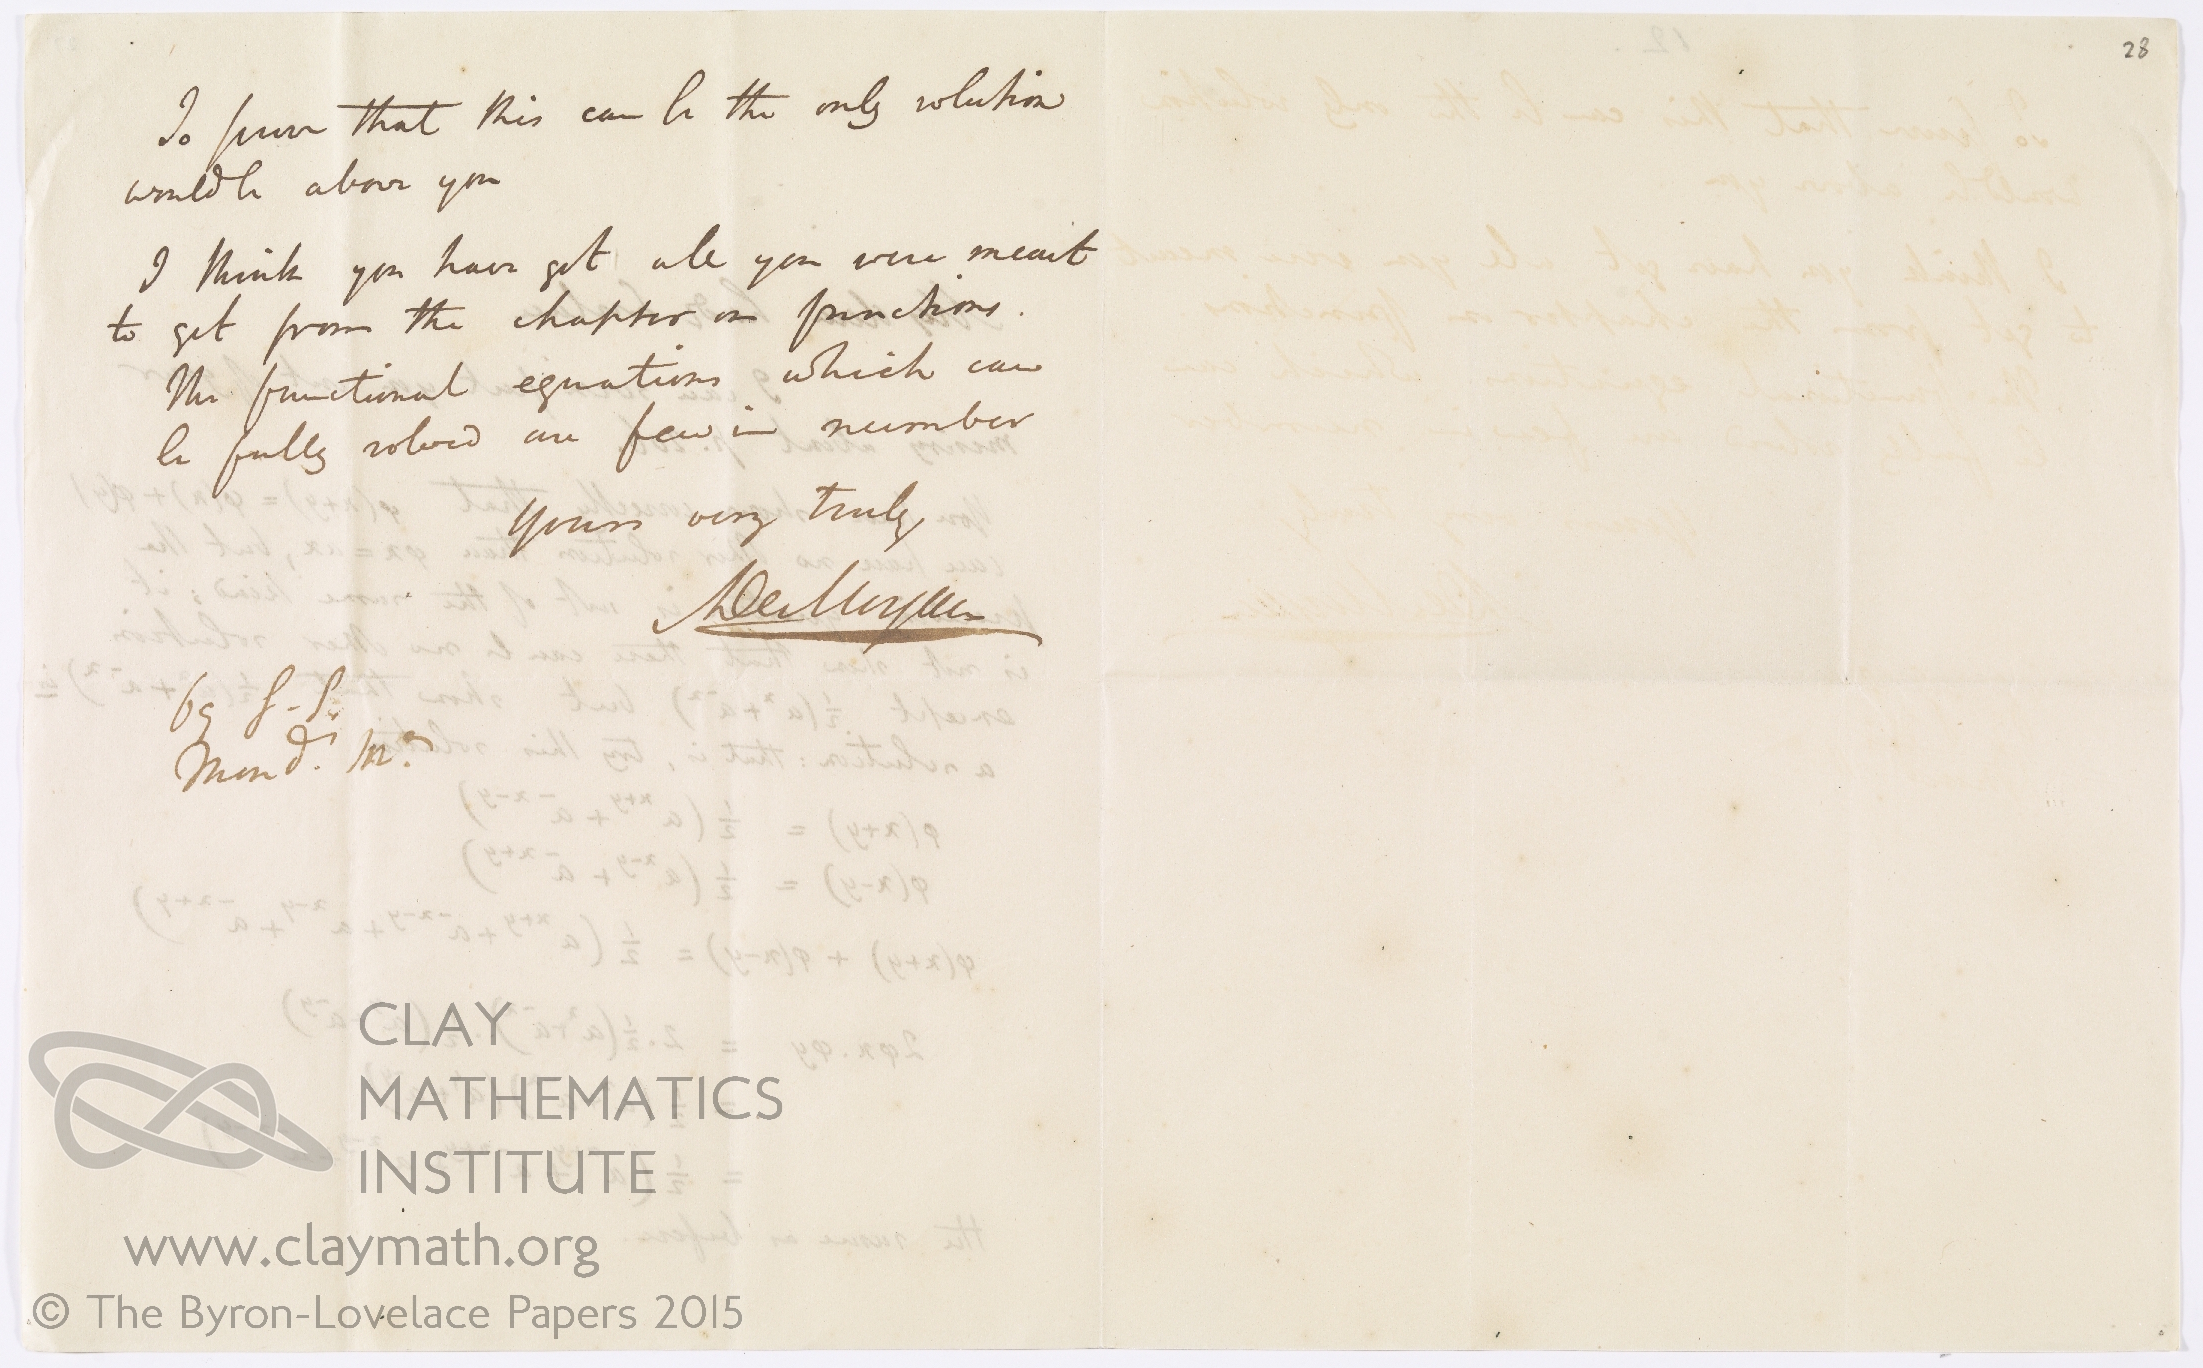 28
To prove that this can be the only solution
would be above you
I think you have got all you were meant
to get from the chapter on functions.
The functional equations which can
be fully solved are few in number
Yours very truly,
ADeMorgan
69 G.P.
Mond.
CLAY
MATHEMATICS
INSTITUTE
www.claymath.org
© The Byron-Lovelace Papers 2015